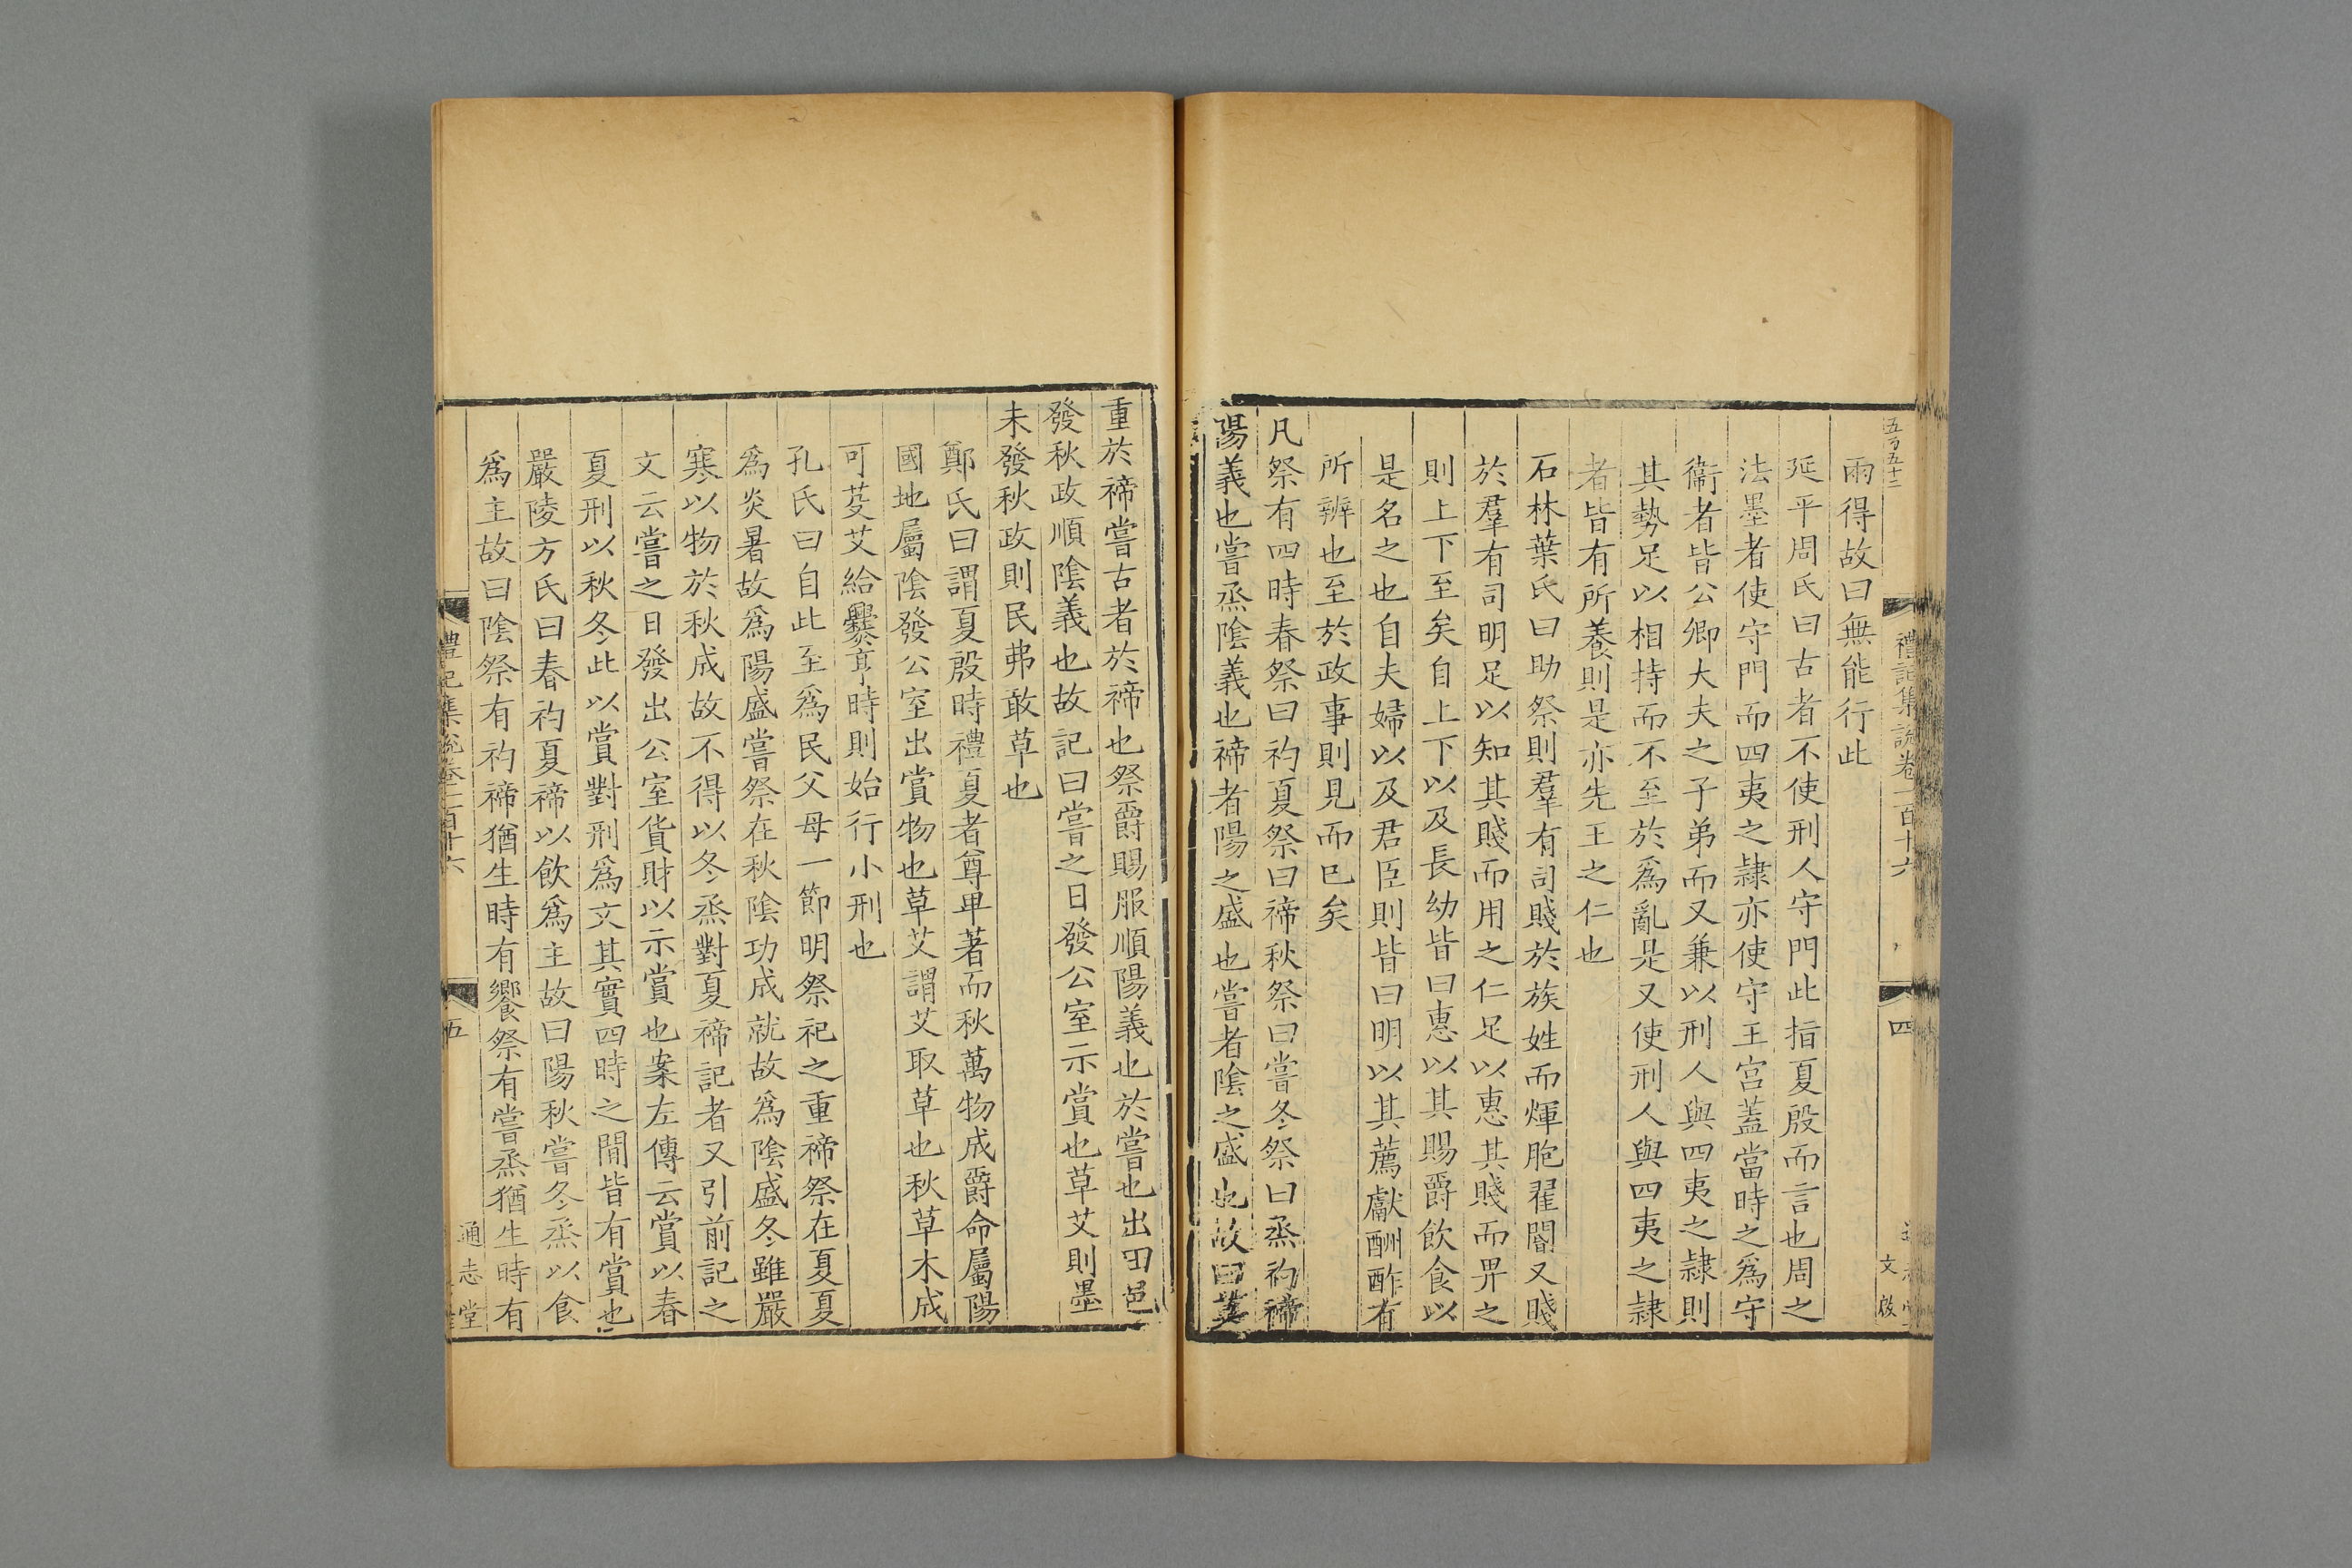 五百五十二
禮記集說卷一百十六
四
文
啟
雨得故曰無能行此
延平周氏曰古者不使刑人守門此指夏殷而言也周之
法墨者使守門而四夷之隷亦使守王宮蓋當時之爲守
衞者皆公卿大夫之子弟而又兼以刑人與四夷之隷則
其勢足以相持而不至於爲亂是又使刑人與四夷之隷
者皆有所養則是亦先王之仁也
石林葉氏曰助祭則羣有司賤於族姓而煇胞翟閽又賤
於羣有司明足以知其賤而用之仁足以惠其賤而畀之
則上下至矣自上下以及長幼皆曰惠以其賜爵飲食以
是名之也自夫婦以及君臣則皆曰明以其薦獻酬酢有
所辨也至於政事則見而已矣
凡祭有四時春祭曰礿夏祭曰禘秋祭曰嘗冬祭曰烝礿禘
陽義也嘗烝陰義也禘者陽之盛也嘗者陰之盛也故曰莫
重於禘嘗古者於禘也祭爵賜服順陽義也於嘗也出田邑
發秋政順陰義也故記曰嘗之日發公室示賞也草艾則墨
未發秋政則民弗敢草也
鄭氏曰謂夏殷時禮夏者尊卑著而秋萬物成爵命屬陽
國地屬陰發公室出賞物也草艾謂艾取草也秋草木成
可芟艾給爨亨時則始行小刑也
孔氏曰自此至爲民父母一節明祭祀之重禘祭在夏夏
爲炎暑故爲陽盛嘗祭在秋陰功成就故爲陰盛冬雖嚴
寒以物於秋成故不得以冬烝對夏禘記者又引前記之
文云嘗之日發出公室貨財以示賞也案左傳云賞以春
夏刑以秋冬此以賞對刑爲文其實四時之閒皆有賞也
嚴陵方氏曰春礿夏禘以飲爲主故曰陽秋嘗冬烝以食
爲主故曰陰祭有礿禘猶生時有饗祭有嘗烝猶生時有
禮記集說卷一百十六
五
通志堂